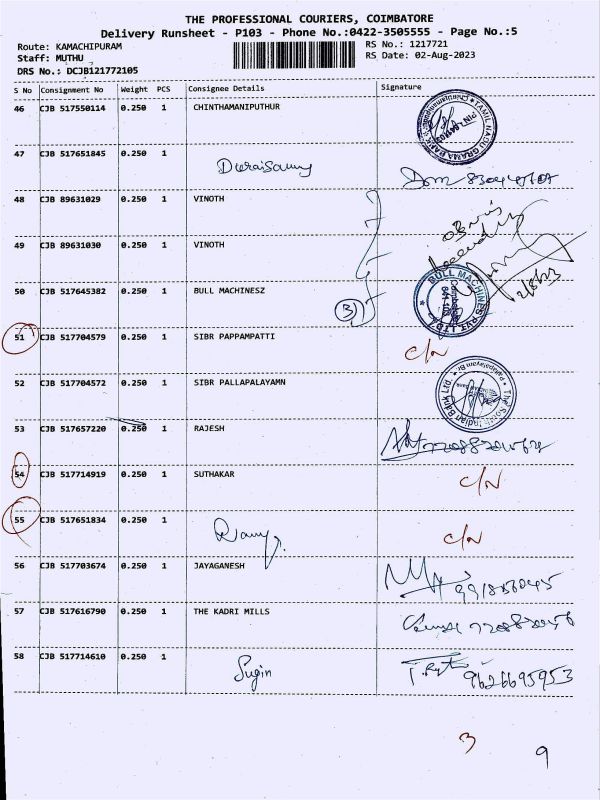 THE PROFESSIONAL COURIERS, COIMBATORE
Delivery Runsheet - P103 - Phone No.:0422-3505555 - Page No.:5
Route: KAMACHIPURAM
RS No.: 1217721
Staff: MUTHU
RS Date: 02-Aug-2023
DRS No.: DCJB121772105
S No Consignment No Weight PCS Consignee Details Signature
46 CJB 517550114 0.250 1 CHINTHAMANIPUTHUR
TAMIL NADU GRAMA BANK
47 CJB 517651845 0.250 1 Duraisamy
48 CJB 89631029 0.250 1 VINOTH
49 CJB 89631030 0.250 1 VINOTH
2/8/23
50 CJB 517645382 0.250 1 BULL MACHINESZ
3
BULL MACHINES PVT LTD
51 CJB 517704579 0.250 1 SIBR PAPPAMPATTI C/N
52 CJB 517704572 0.250 1 SIBR PALLAPALAYAMN
The South Indian Bank Ltd.
53 CJB 517657220 0.250 1 RAJESH
54 CJB 517714919 0.250 1 SUTHAKAR C/N
55 CJB 517651834 0.250 1 C/N
56 CJB 517703674 0.250 1 JAYAGANESH
57 CJB 517616790 0.250 1 THE KADRI MILLS
58 CJB 517714610 0.250 1 Sugin 9626695953
3
9